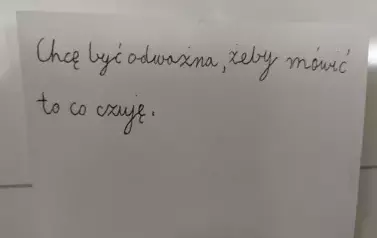 Chcę być odważna, żeby mówić
to co czuję.